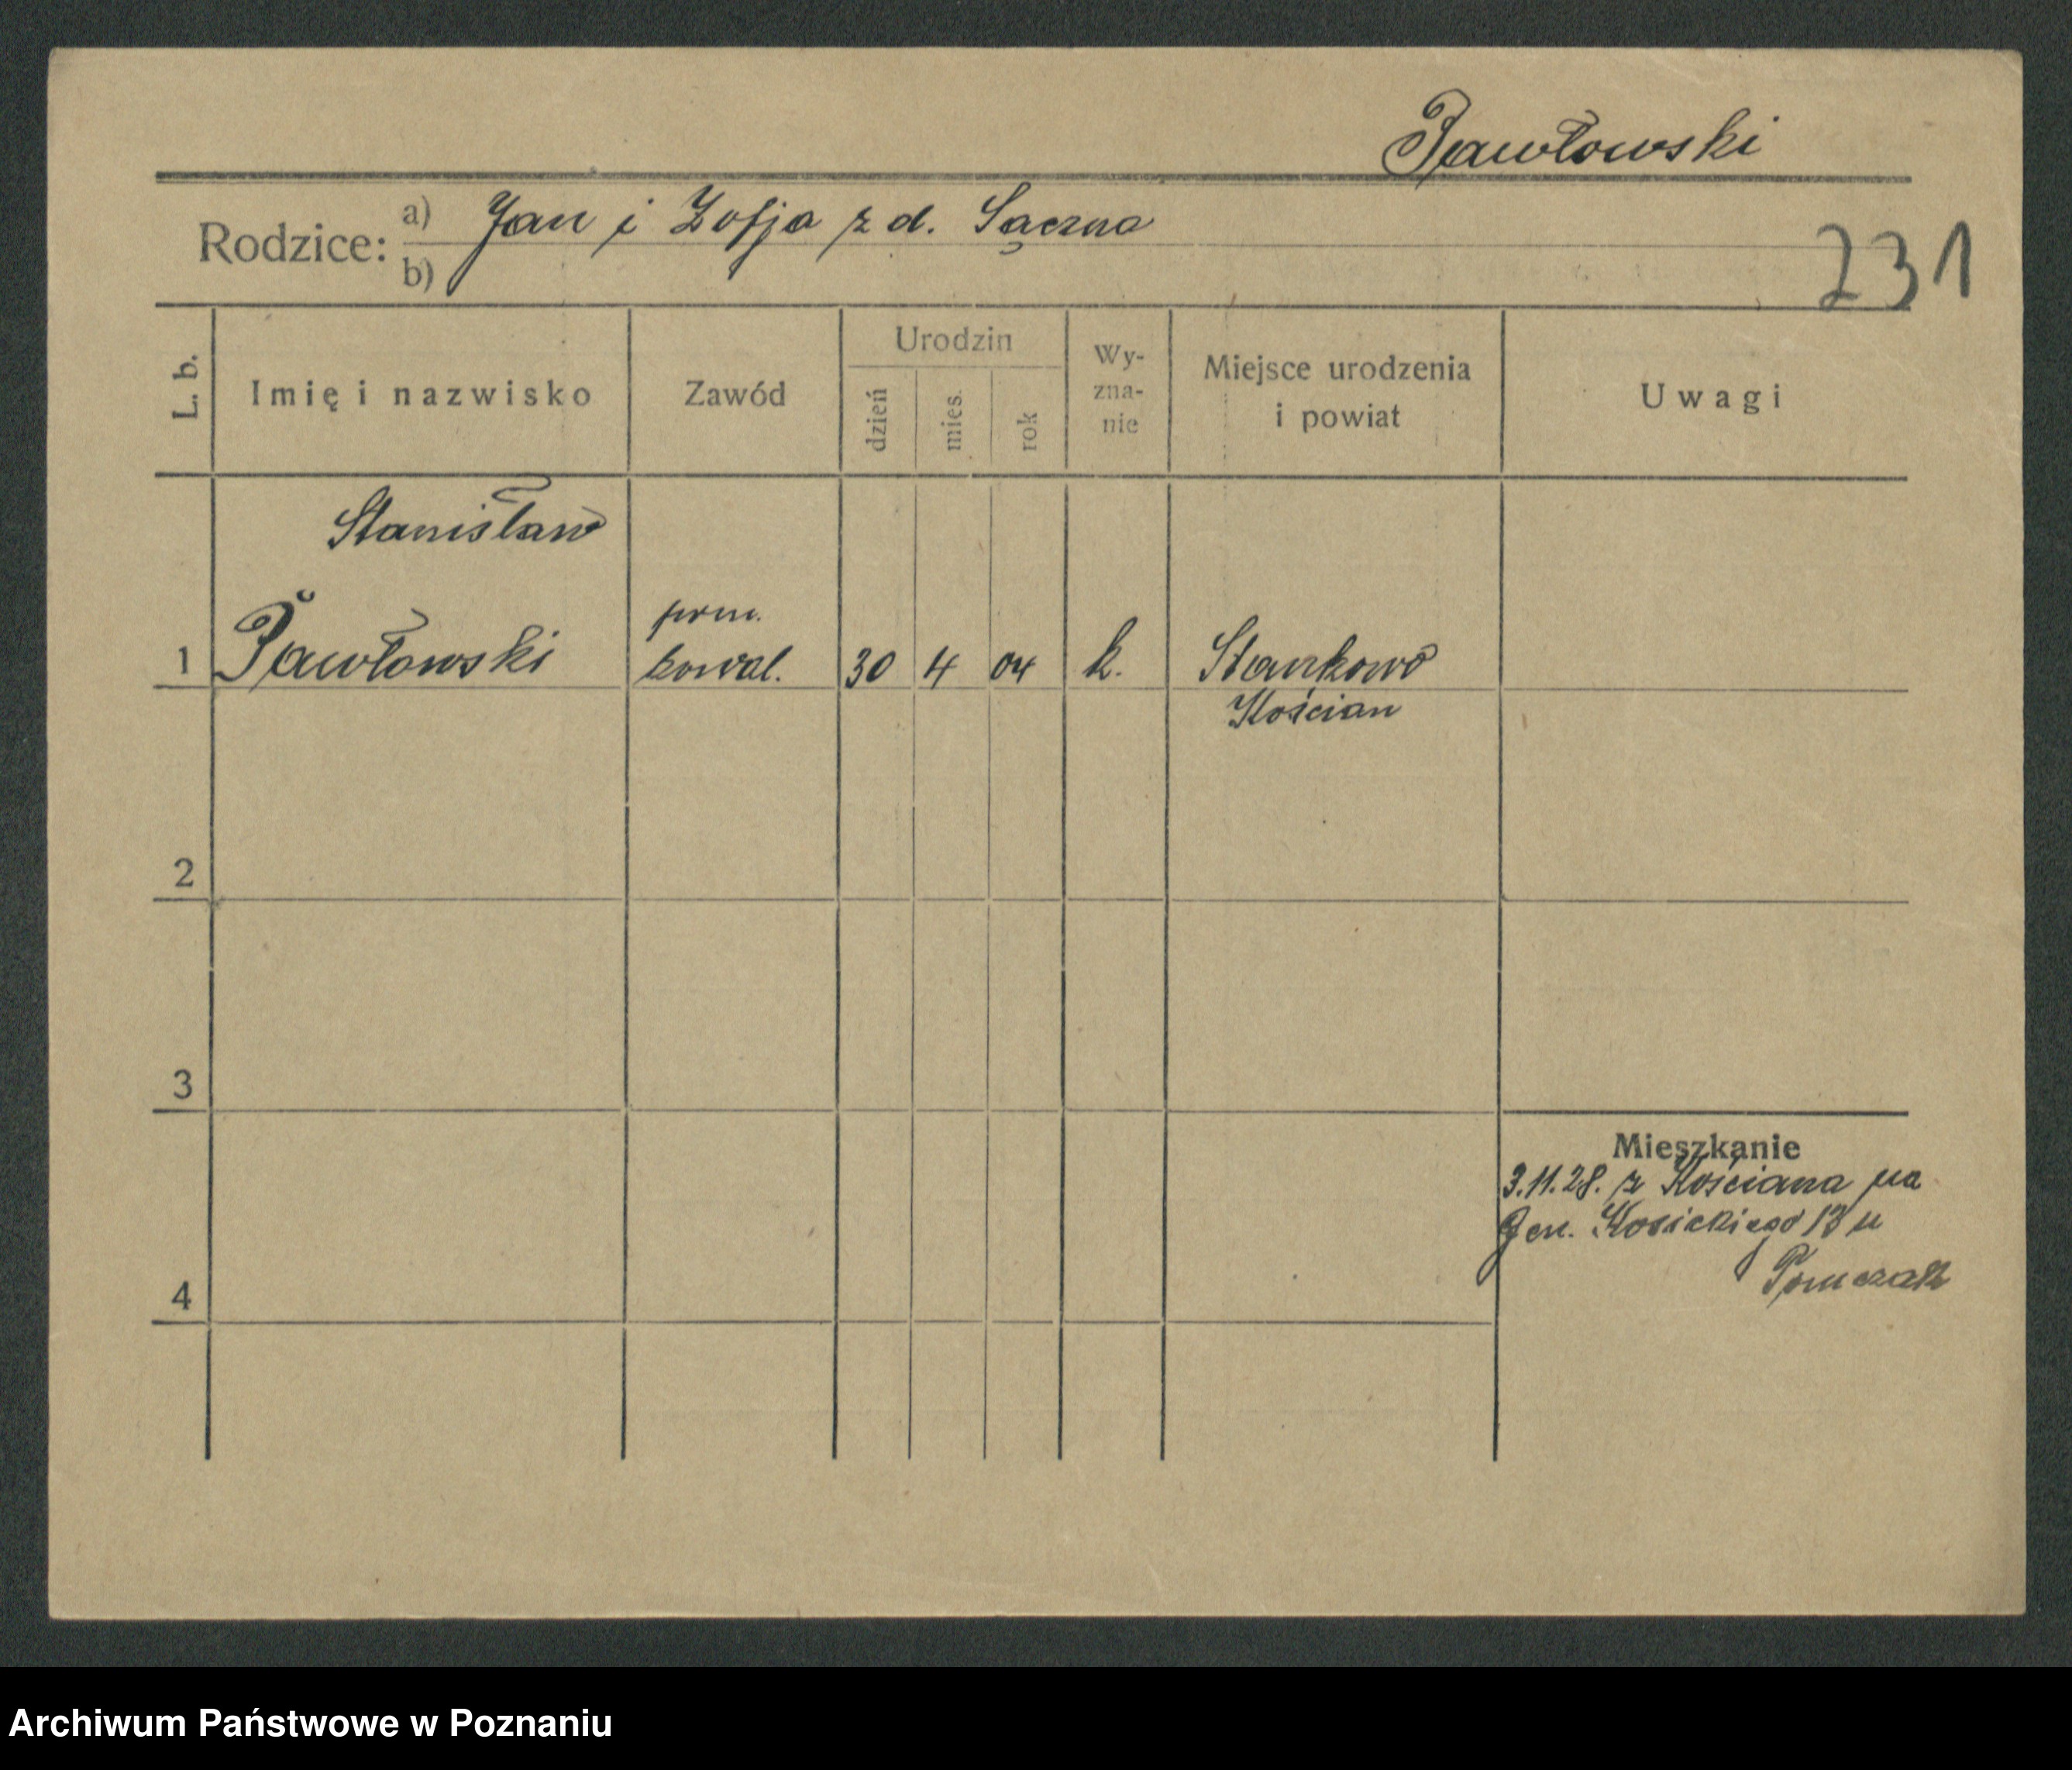 Pawłowski
Rodzice: a) Jan i Zofja z d. Sączna
b)
231
L. b.
Imię i nazwisko
Zawód
Urodzin
dzień
mies.
rok
Wy-
zna-
nie
Miejsce urodzenia
i powiat
Uwagi
Stanisław
pom.
1 Pawłowski kowal. 30 4 04 k. Stankowo
Kościan
2
3
Mieszkanie
3.11.28. z Kościana na
Gen. Kosickiego 13 u
4
Archiwum Państwowe w Poznaniu